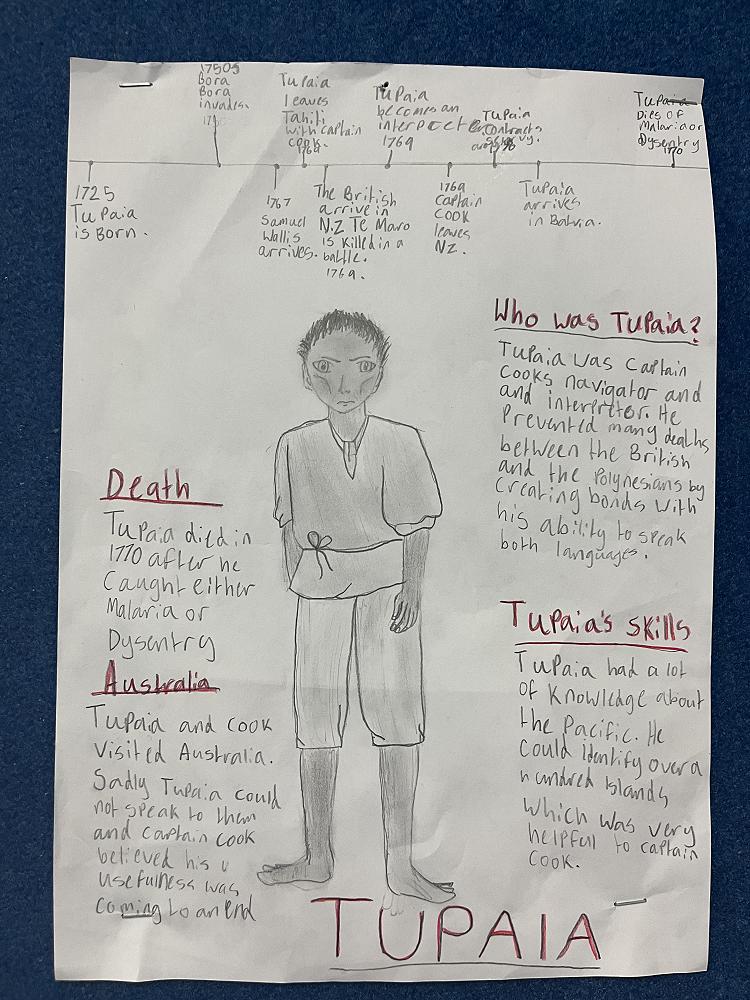 1750s
Bora
Bora
invades.
Tupaia
leaves
Tahiti
with captain
cook.
1769
Tupaia
becomes an
interpreter
1769
Tupaia
contracts
scurvy.
1770
Tupaia
Dies of
Malaria or
Dysentry
1770
1725
Tupaia
is Born.
1767
Samuel
Wallis
arrives.
The British
arrive in
N.Z Te Maro
is killed in a
battle.
1769.
1769
Captain
Cook
leaves
NZ.
Tupaia
arrives
in Batvia.
Who was Tupaia?
Tupaia was Captain
Cooks navigator and
and interpretor. He
Prevented many deaths
between the British
and the Polynesians by
Creating bonds with
his ability to speak
both languages.
Death
Tupaia died in
1770 after he
Caught either
Malaria or
Dysentry
Australia
Tupaia and cook
Visited Australia.
Sadly Tupaia could
not speak to them
and Captain cook
believed his u
usefulness was
coming to an end
Tupaia's skills
Tupaia had a lot
of knowledge about
the Pacific. He
could identify over a
hundred Islands
which was very
helpful to captain
Cook.
TUPAIA